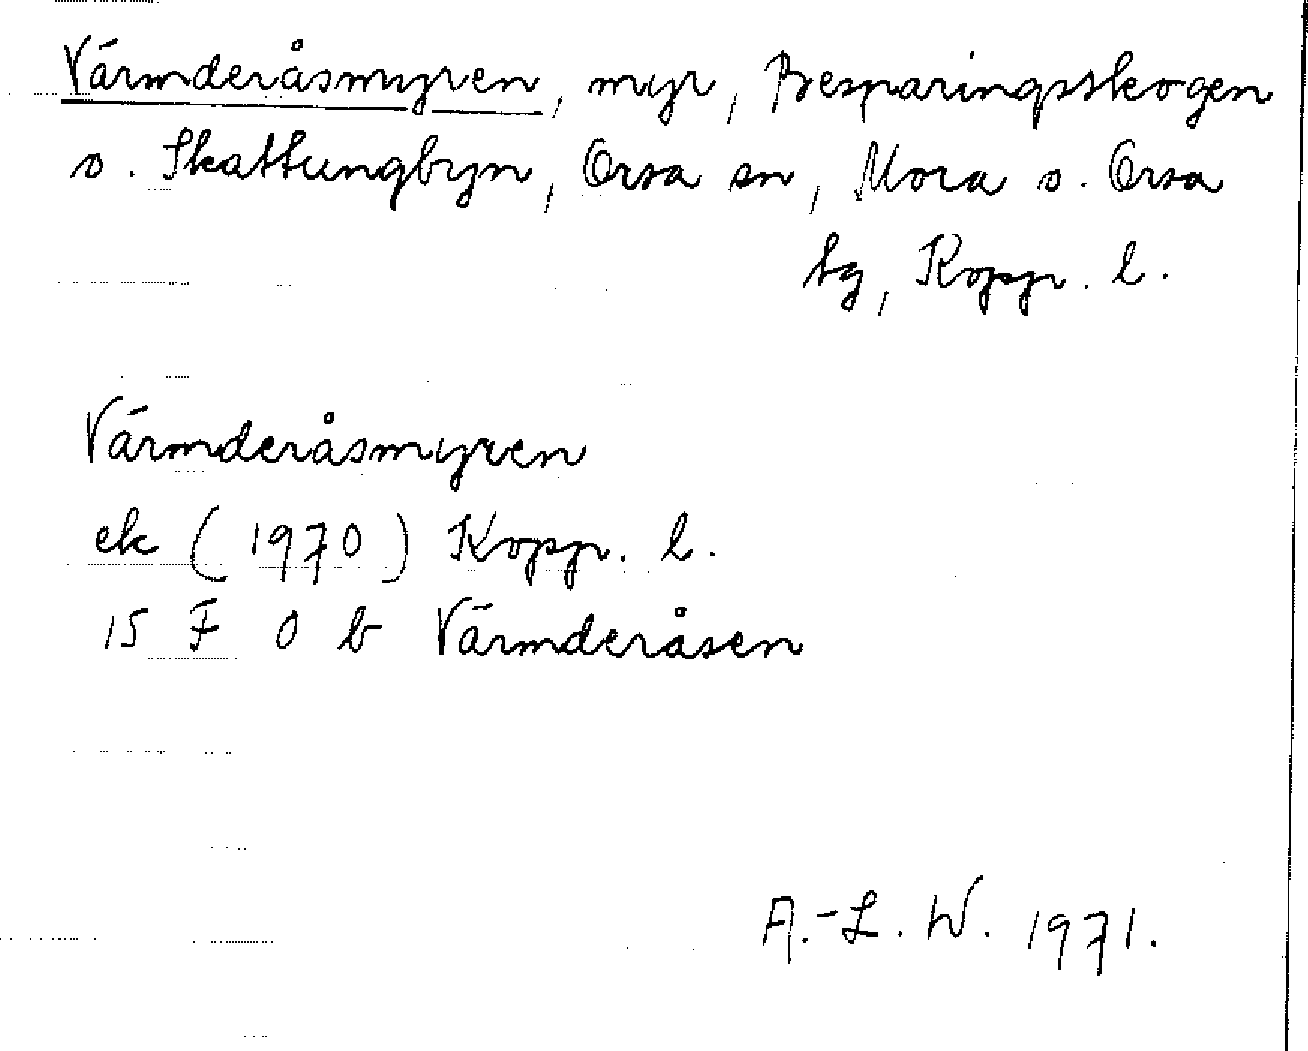 Värmderåsmyren, myr, Besparingsskogen
o. Skattungbyn, Orsa sn, Mora o. Orsa
tg, Kopp. l.
Värmderåsmyren
ek (1970) Kopp. l.
15 F 0 b Värmderåsen
A.-L. W. 1971.